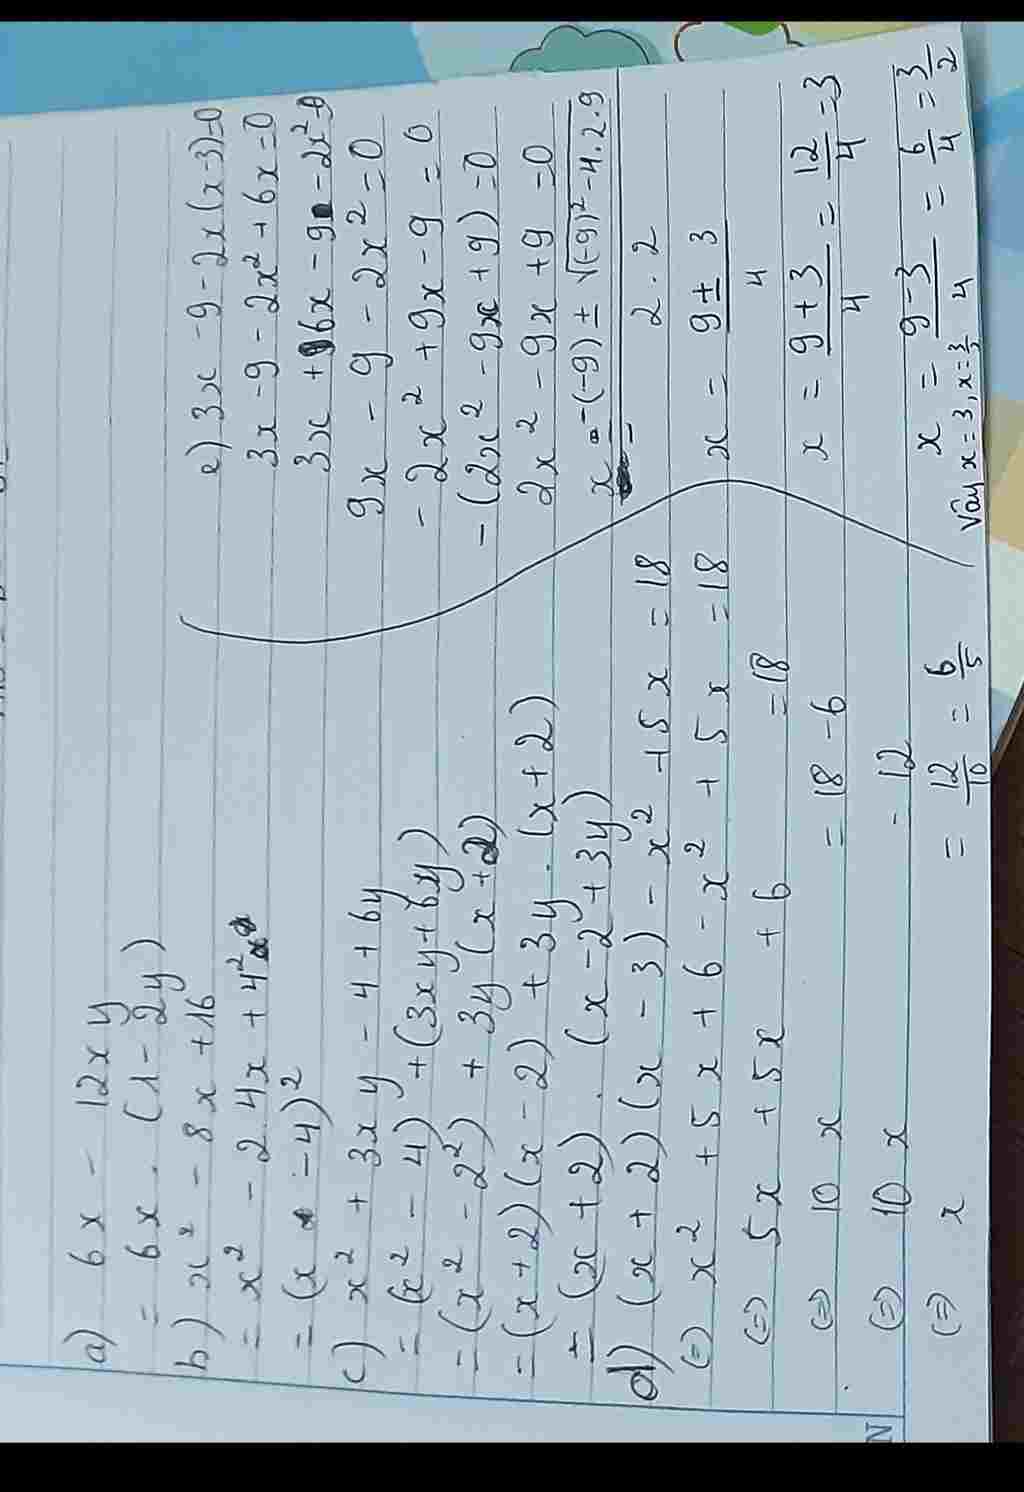 a) 6x - 12xy
= 6x . (1 - 2y)
b) x² - 8x + 16
= x² - 2.4x + 4²
= (x - 4)²
c) x² + 3xy - 4 + 6y
= (x² - 4) + (3xy + 6y)
= (x² - 2²) + 3y (x + 2)
= (x + 2)(x - 2) + 3y . (x + 2)
= (x + 2) . (x - 2 + 3y)
d) (x + 2)(x - 3) - x² + 5x = 18
(=) x² + 5x + 6 - x² + 5x = 18
(=) 5x + 5x + 6 = 18
(=) 10 x = 18 - 6
(=) 10 x = 12
(=) x = 12/10 = 6/5
e) 3x - 9 - 2x(x-3)=0
3x - 9 - 2x² + 6x = 0
3x + 6x - 9 - 2x² = 0
9x - 9 - 2x² = 0
- 2x² + 9x - 9 = 0
- (2x² - 9x + 9) = 0
2x² - 9x + 9 = 0
x = -(-9) ± √(-9)² - 4.2.9
2 . 2
x = 9 ± 3
4
x = 9 + 3 / 4 = 12/4 = 3
x = 9 - 3 / 4 = 6/4 = 3/2
Vậy x = 3, x = 3/2
N